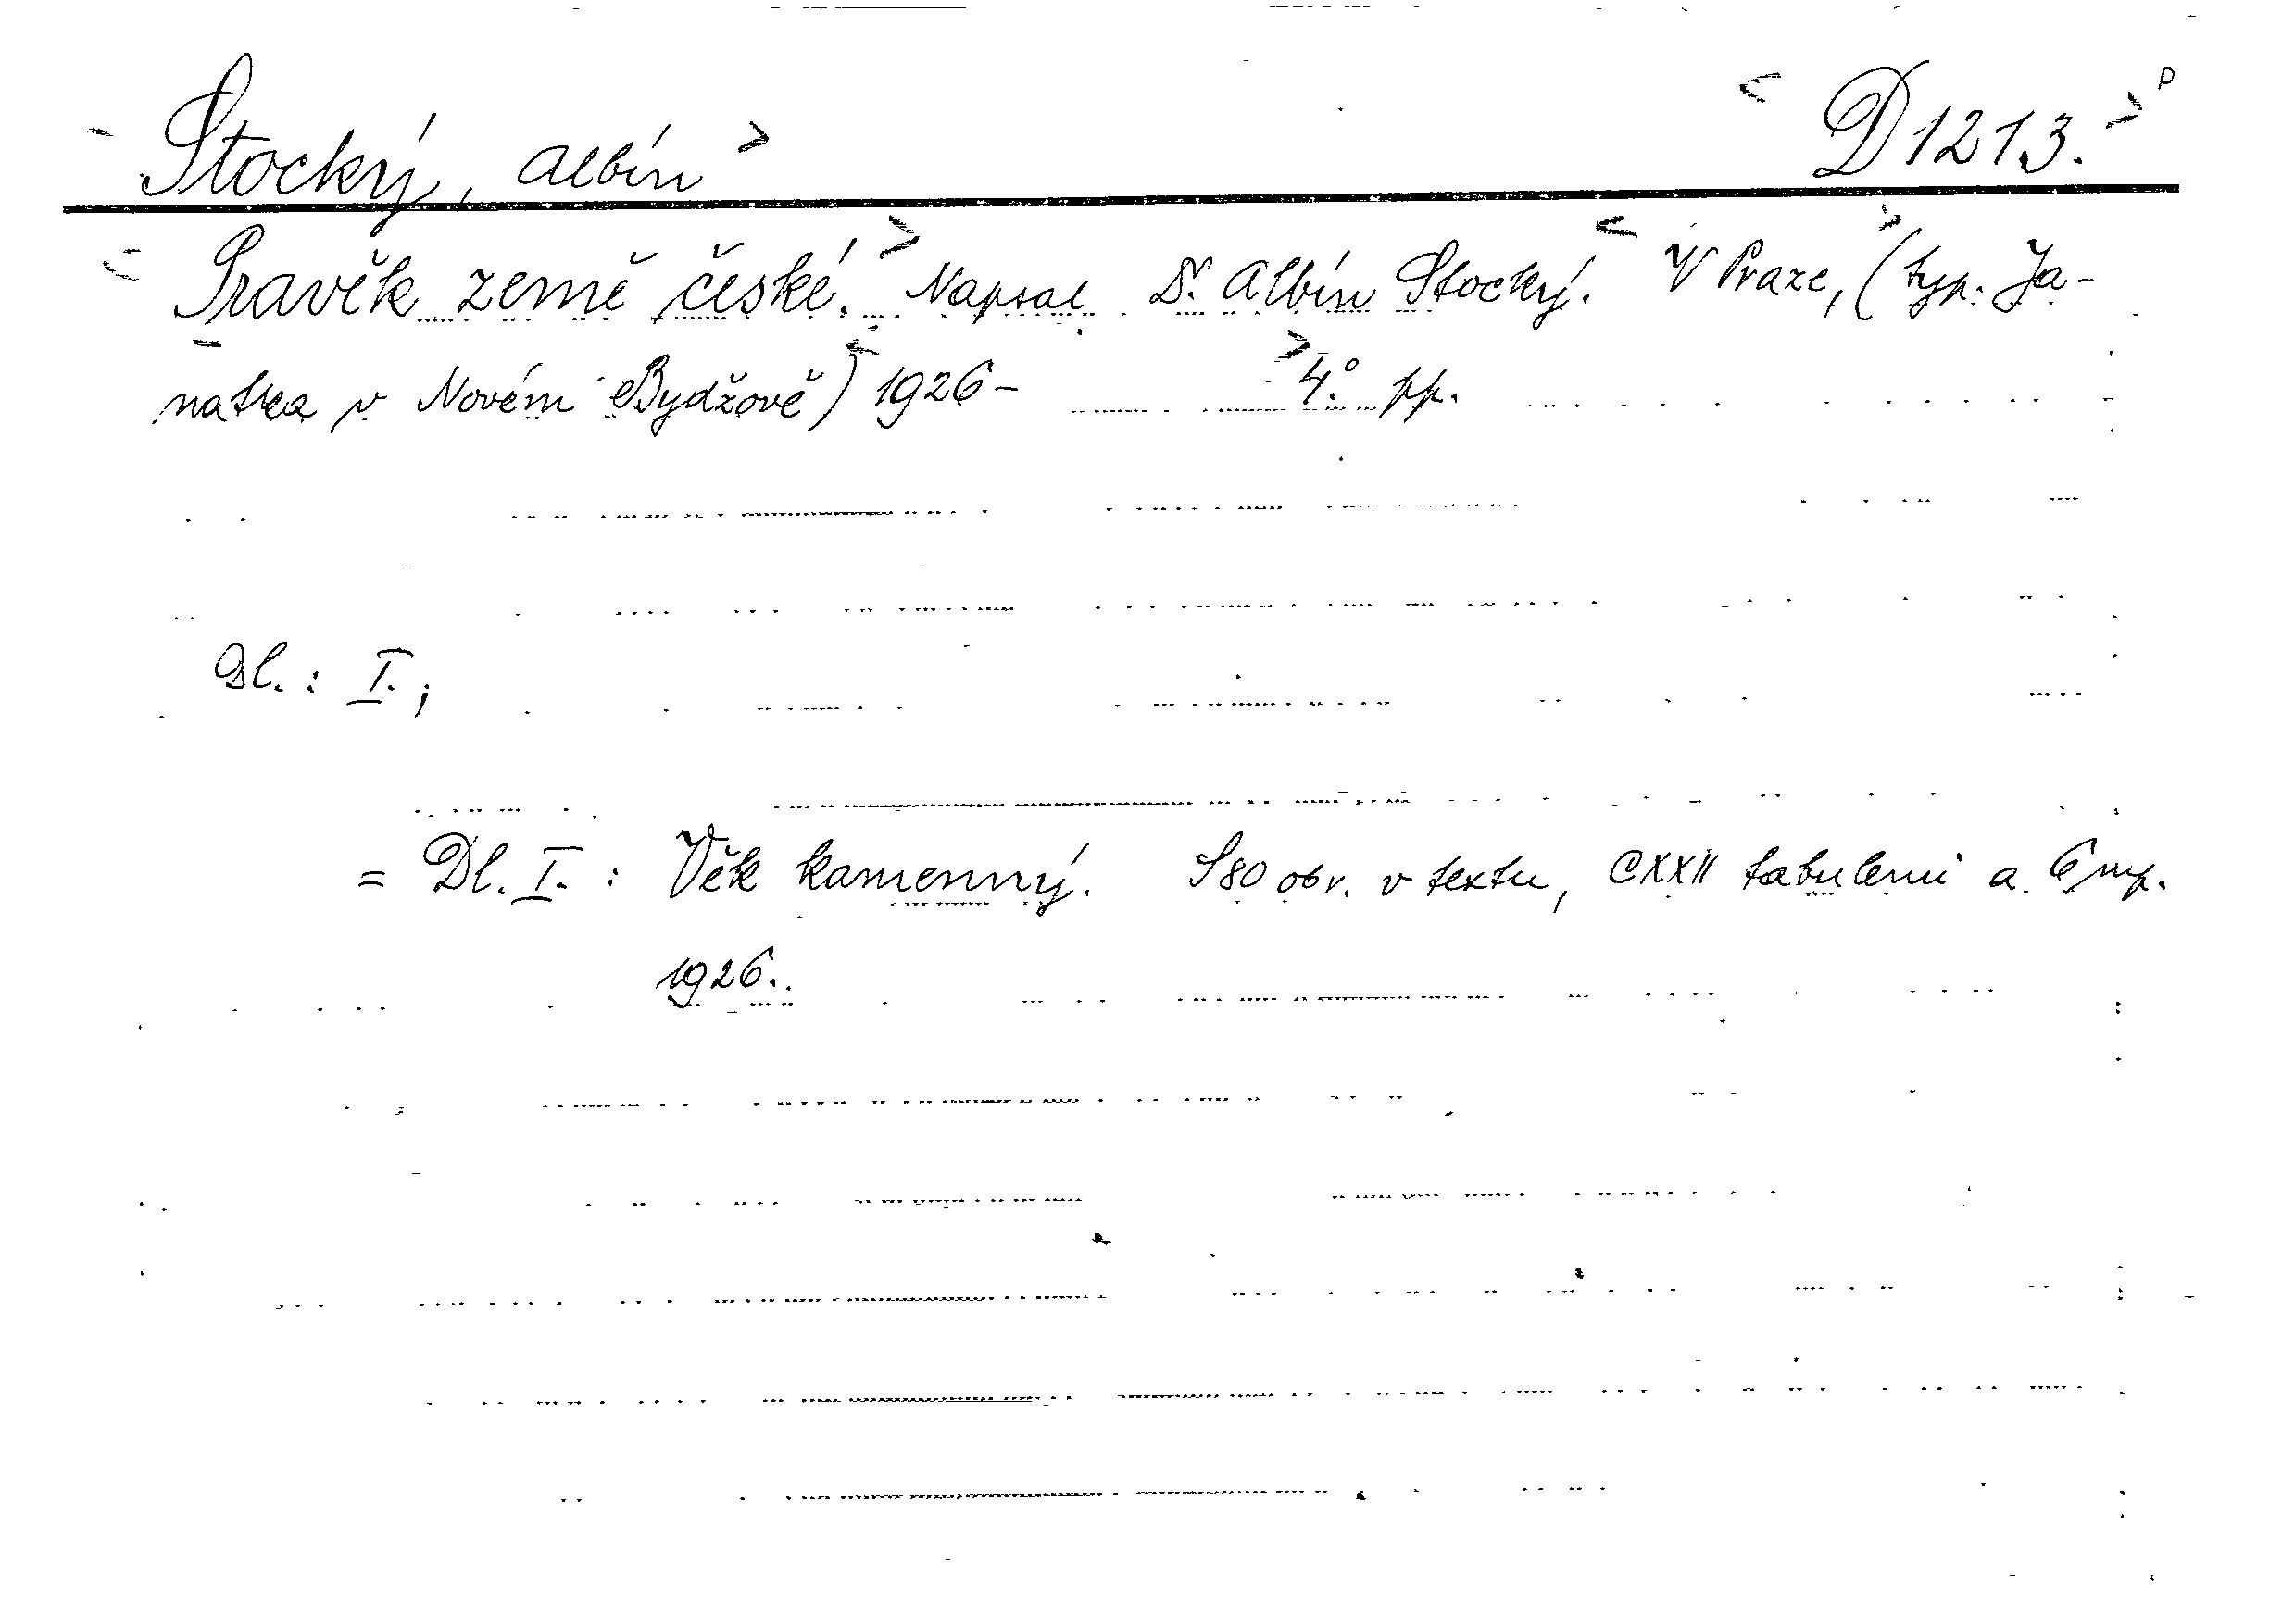 Stocký, Albín D 1213. p
Pravěk země české. Napsal Dr. Albín Stocký. V Praze, (typ. Ja-
natka v Novém Bydžově) 1926- 4°. pp.
Dl.: I.;
= Dl. I.: Věk kamenný. S 80 obr. v textu, CXXII tabulemi a 6 mp.
1926.